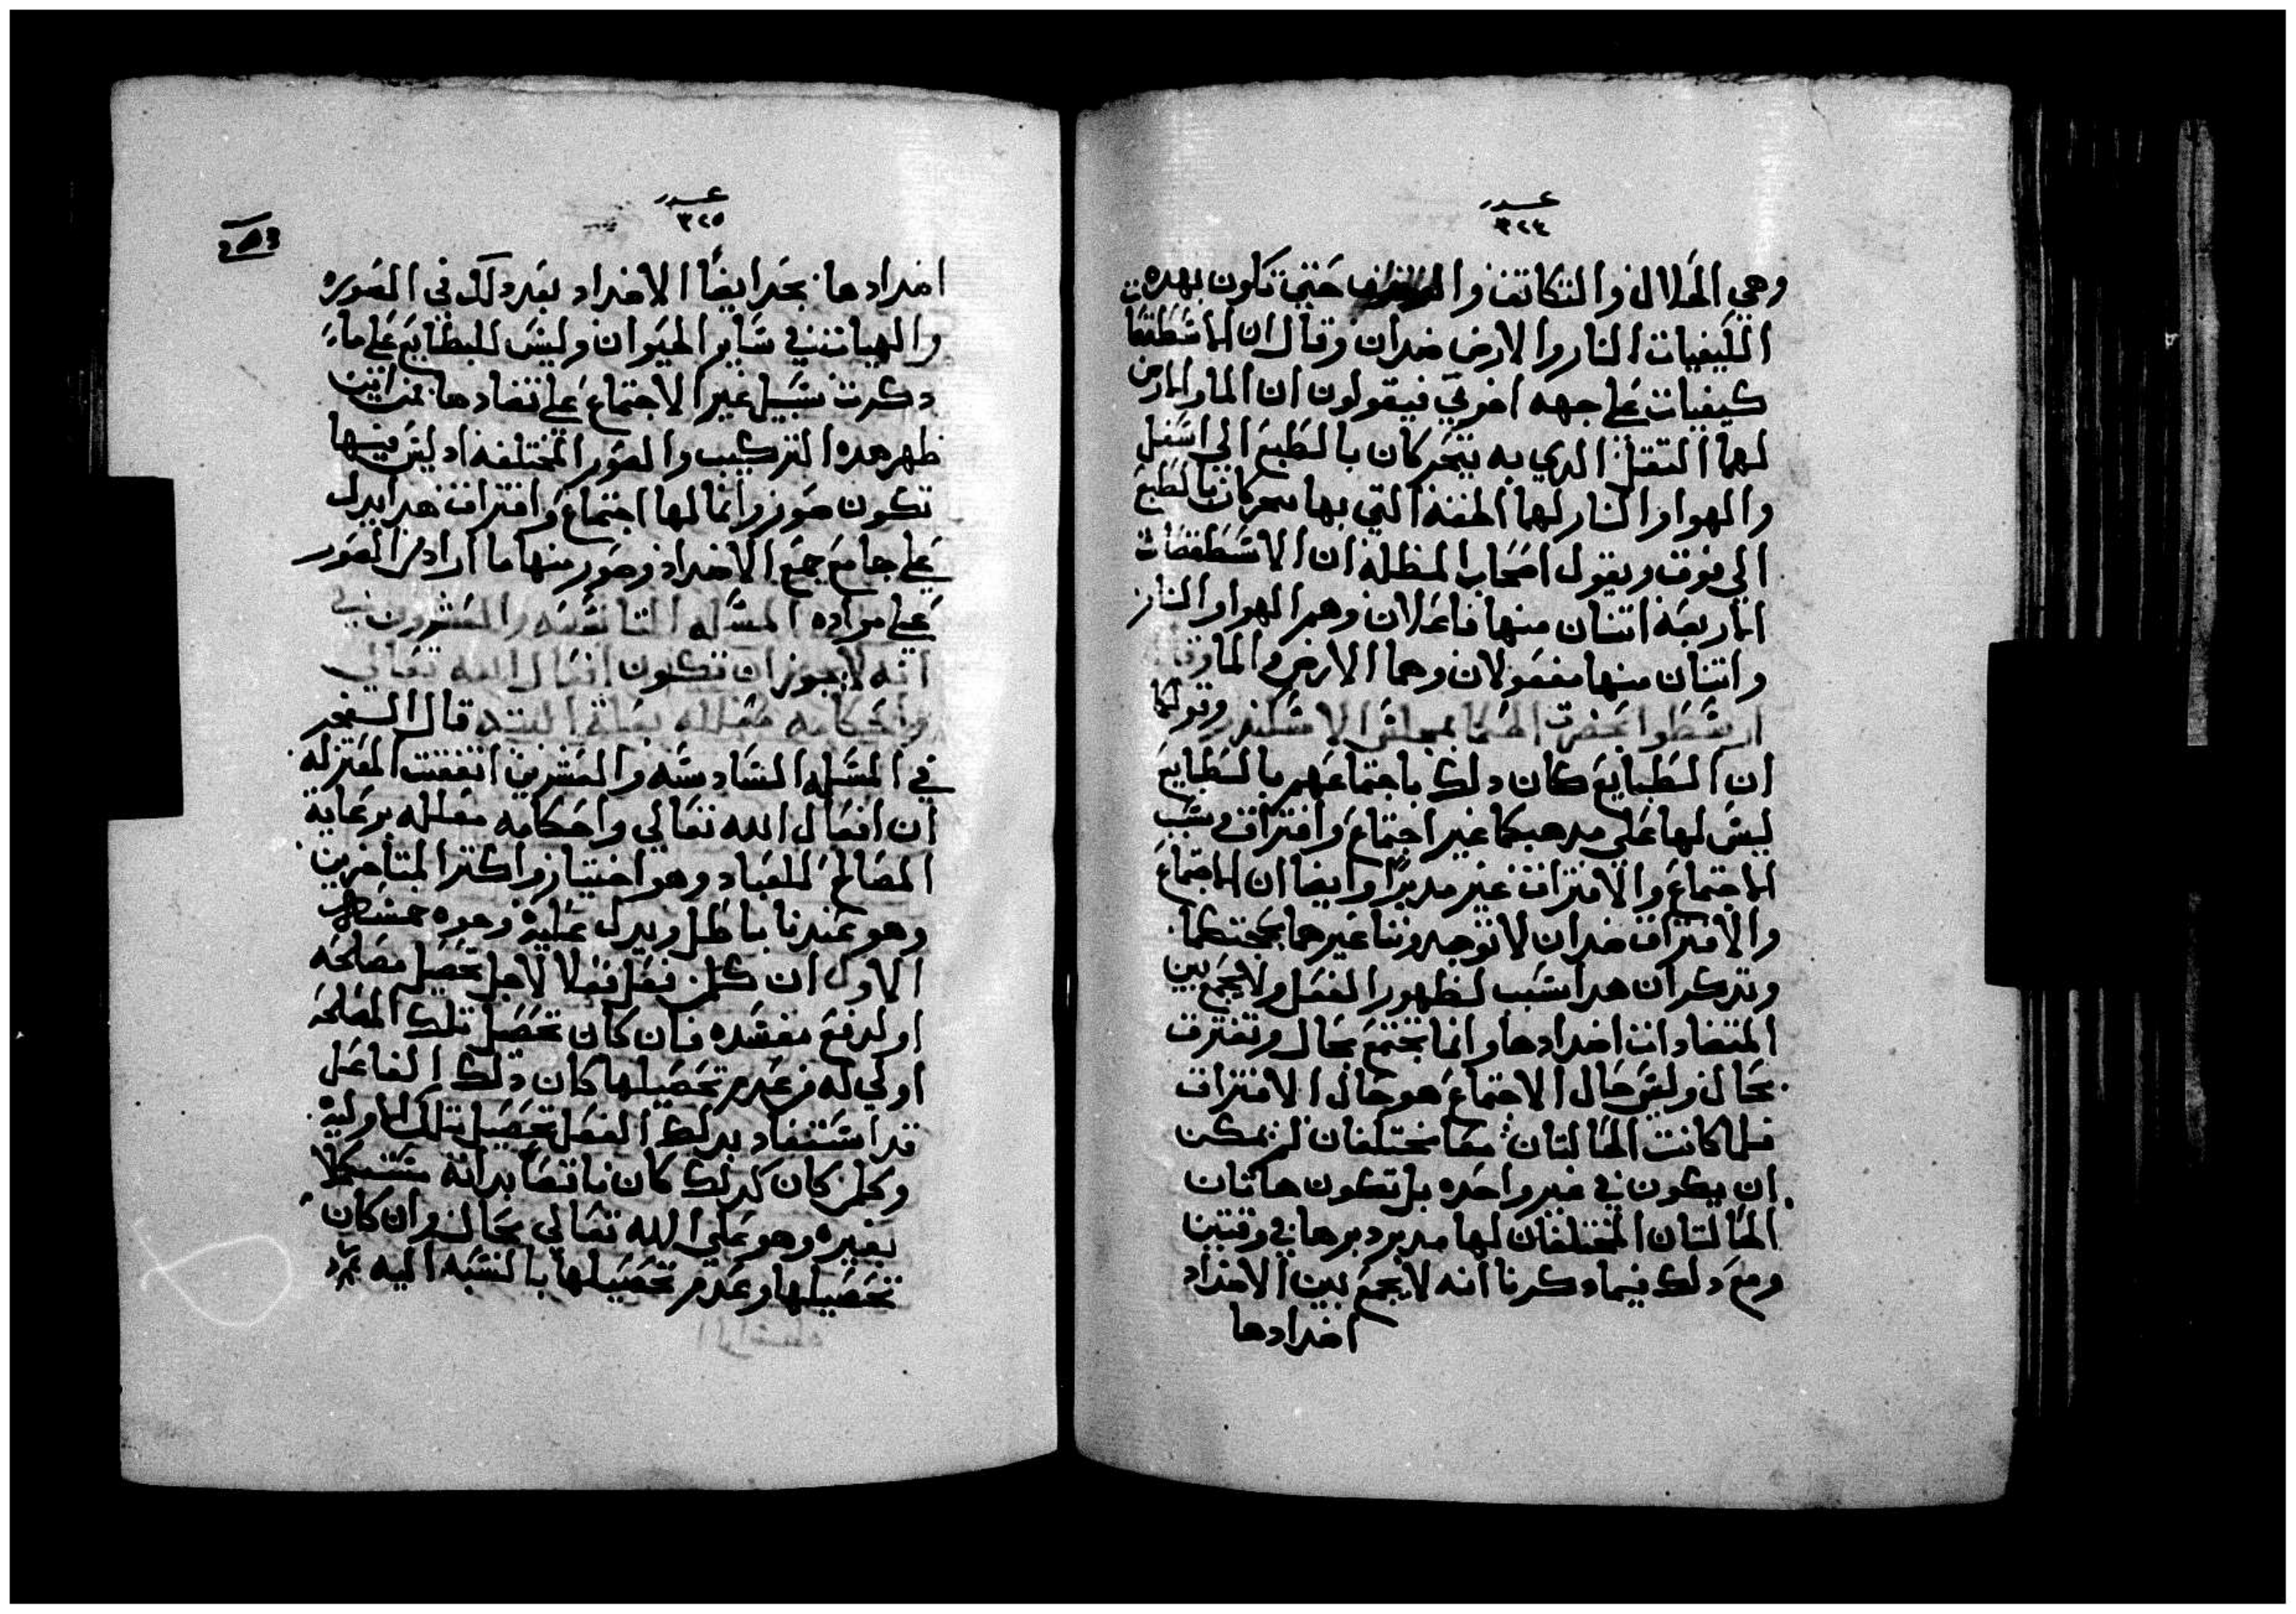 عدد
٣٢٤
وهي الخلال والتكاتف حتي تكون بهده
الكيفيات النار والارض ضدان وقال ان الاسطقصا
كيفيات علي جهه اخري فيقولون ان الما والارض
لهما التقل الدي به يتحركان بالطبع الي اسفل
والهوا والنار لهما الخفه التي بها يتحركان بالطبع
الي فوق ويقول اصحاب المظله ان الاسطقصات
الاربعه اتنان منها فاعلان وهم الهوا والنار
واتنان منها مفعولان وهما الارض والما وقا
ارسطوا بحضرت الحكما بمجلس الاسكندر وقولكما
ان الطبايع كان دلك باجتماعهم بالطبايع
ليس لها علي مدهبكما غير اجتماع وافتراق وسبب
الاجتماع والافتراق غير مدبرًا وايضا ان الاجتماع
والافتراق ضدان لا توجدوننا غيرهما بحجتكما
وتدكر ان هدا سبب لظهور الفعل ولا يجمع بين
المتضادات اضدادها وانما تجتمع بحال وتفترق
بحال وليس حال الاجتماع هو حال الافتراق
فلما كانت الحالتان معا مختلفان لم يمكن
ان يكون في غير واحده بل تكون هاتان
الحالتان المختلفان لها مدبر دبرها في وقتين
ومع دلك فيما دكرنا انه لا يجمع بين الاضداد
اضدادها
عدد
٣٢٥
اضدادها نجد ايضًا الاضداد بعد دلك في الصوره
والهيات في ساير الحيوان وليس للطبايع علي ما
دكرت سبيل غير الاجتماع علي تضادها فمن اين
ظهر هده التركيب والصور المختلفه اد ليس فيها
تكون صور وانما لها اجتماع وافتراق هدا يدل
علي جامع جمع الاضداد وصور منها ما اراد من الصور
علي مراده المسله التاسعه والعشرون في
انه لا يجوز ان تكون افعال الله تعالي
واحكامه معلله بعلة البته قال الفخر
في المسله السادسه والعشرين اتفقت المعتزله
ان افعال الله تعالي واحكامه معلله برعاية
المصالح للعباد وهو اختيار واكتر المتاخرين
وهو عندنا باطل ويدل عليه وجوه خمسه
الاول ان كلمن فعل فعلا لاجل تحصيل مصلحه
او لدفع مفسده فان كان تحصيل تلك المصلحه
اولي له من عدم تحصيلها كان دلك الفاعل
قد استفاد بدلك الفعل تحصيل تلك الاوليه
وكلمن كان كدلك كان ناقصًا بداته مستكملا
بغيره وهو علي الله تعالي محال وان كان
تحصيلها وعدم تحصيلها بالنسبه اليه